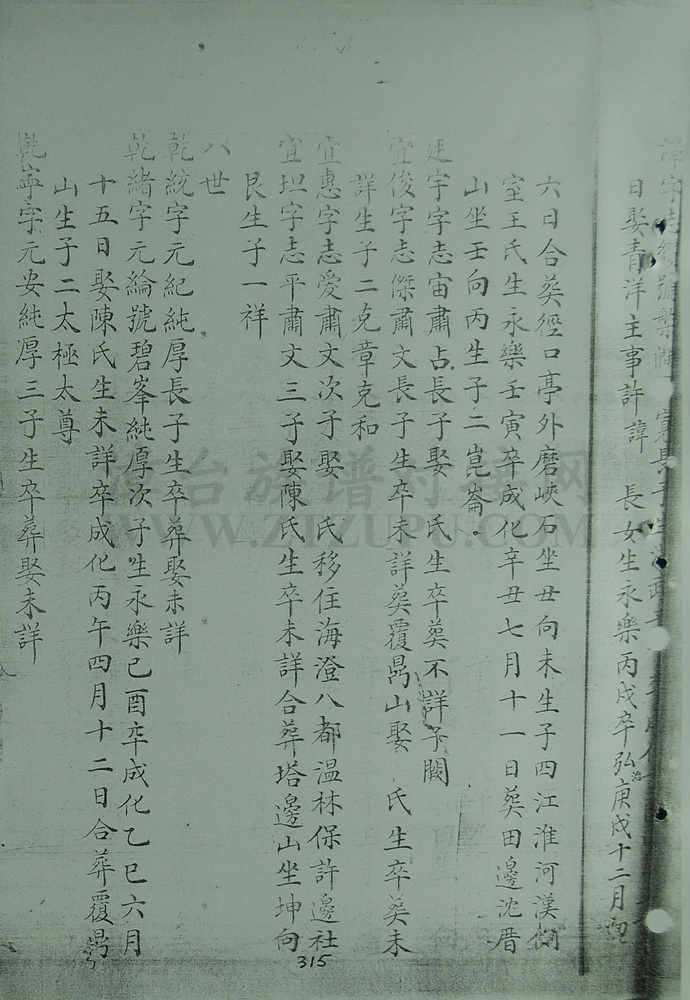 澤字志
日娶青洋主事許諱 長女生永樂丙戌卒弘治庚戌十二月
六日合葬徑口亭外磨峽石坐丑向未生子四江淮河漢側
室王氏生永樂壬寅卒成化辛丑七月十一日葬田邊沈厝
山坐壬向丙生子二崑崙。
廷宇字志宙肅占長子娶 氏生卒葬不詳子闕
宜俊字志傑肅文長子生卒未詳葬覆鼎山娶 氏生卒葬未
詳生子二克章克和
宜惠字志愛肅文次子娶 氏移住海澄八都溫林保許邊社
宜坦字志平肅文三子娶陳氏生卒未詳合葬塔邊山坐坤向
艮生子一祥
八世
乾統字元紀純厚長子生卒葬娶未詳
乾緒字元綸號碧峯純厚次子生永樂己酉卒成化乙巳六月
十五日娶陳氏生未詳卒成化丙午四月十二日合葬覆鼎
山生子二太極太尊
乾寧字元安純厚三子生卒葬娶未詳
315
台族谱对接网
WWW.ZTZUPU.COM